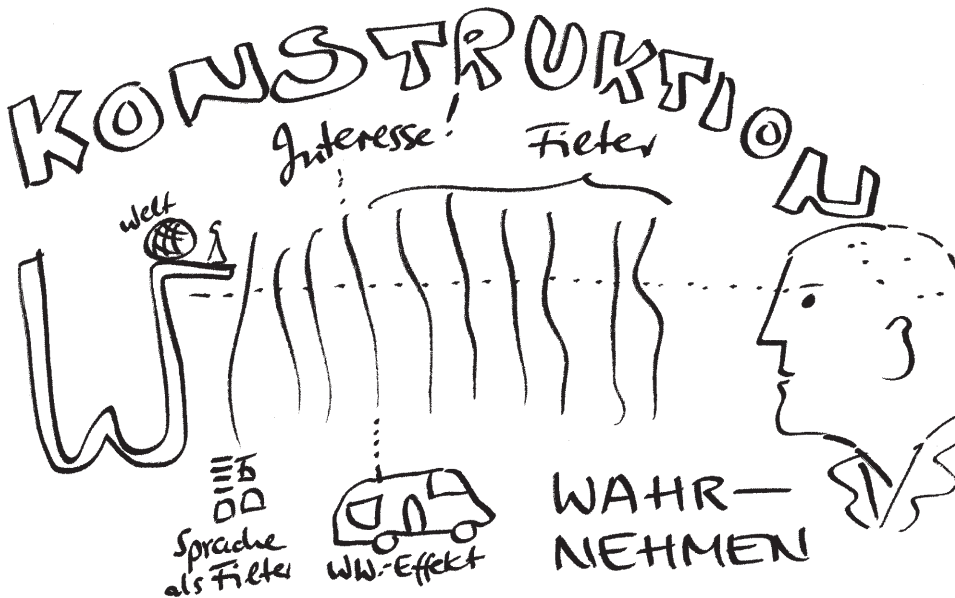 KONSTRUKTION
Interesse!
Filter
Welt
W
Sprache
als Filter
WW.-Effekt
WAHR-
NEHMEN